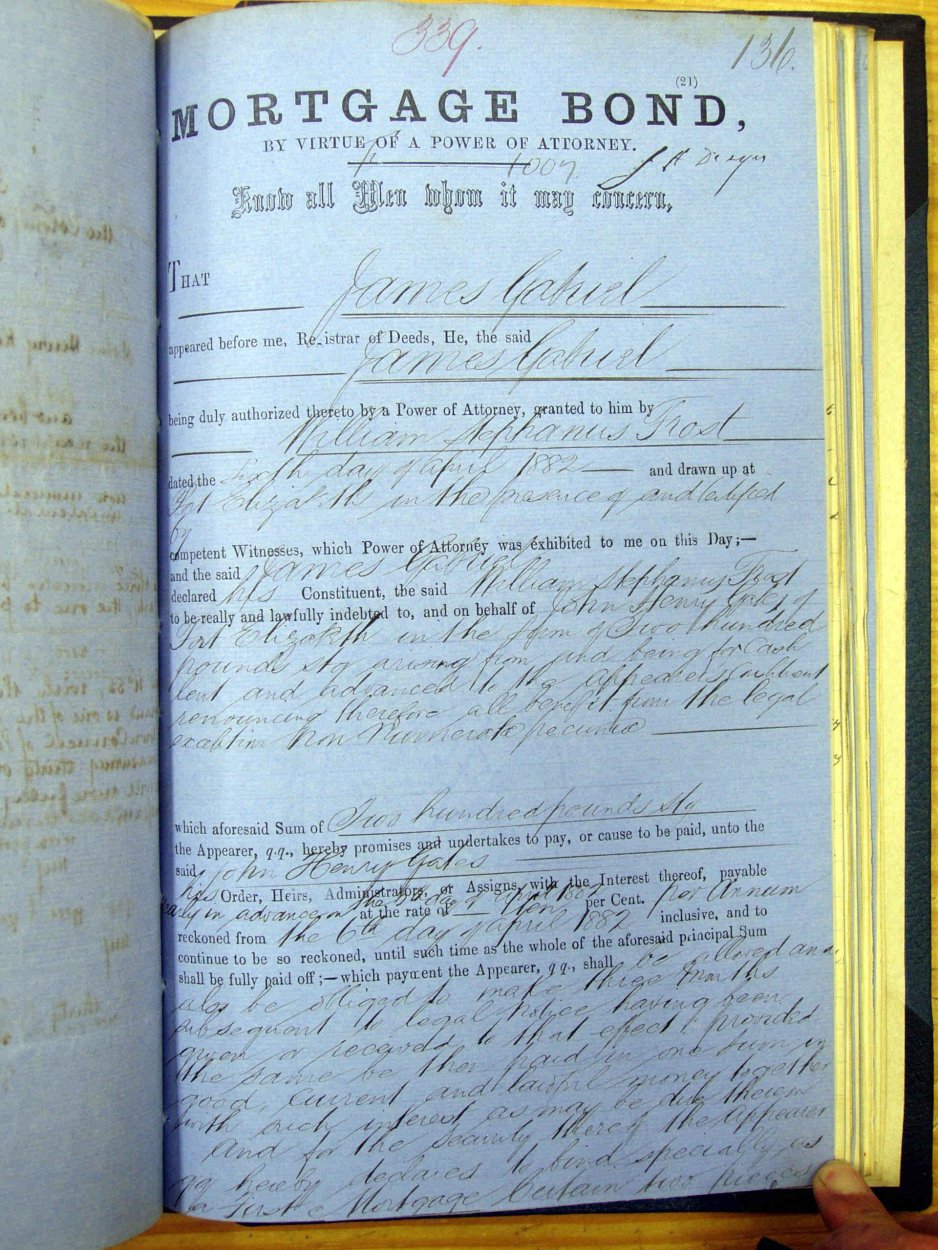 339.
136.
(21)
MORTGAGE BOND,
BY VIRTUE OF A POWER OF ATTORNEY.
1007.
Know all Men whom it may concern,
THAT James Gabriel
appeared before me, Registrar of Deeds, He, the said
James Gabriel
being duly authorized thereto by a Power of Attorney, granted to him by
William Stephanus Trost
dated the Sixth day of April 1882 and drawn up at
Port Elizabeth in the presence of and Certified
by
competent Witnesses, which Power of Attorney was exhibited to me on this Day;—
and the said James Gabriel
declared his Constituent, the said William Stephanus Trost
to be really and lawfully indebted to, and on behalf of John Henry Gates of
Port Elizabeth in the Sum of Two hundred
pounds stg arising from and being for Cash
lent and advanced to the appearers Constituent
renouncing therefore all benefit from the legal
exception Non Numeratæ pecuniæ
which aforesaid Sum of Two hundred pounds stg
the Appearer, q.q., hereby promises and undertakes to pay, or cause to be paid, unto the
said John Henry Gates
his Order, Heirs, Administrators, or Assigns, with the Interest thereof, payable
yearly in advance on the day of April 1882
at the rate of Ten per Cent. per Annum
reckoned from the 6th day of April 1882 inclusive, and to
continue to be so reckoned, until such time as the whole of the aforesaid principal Sum
shall be fully paid off;—which payment the Appearer, q.q., shall be allowed and
also be obliged to make three months
subsequent to legal notice having been
given or received to that effect provided
the same be then paid in one sum in
good, current and lawful money together
with such interest as may be due thereon
And for the Security thereof the appearer
qq hereby declares to bind specially as
a First Mortgage Certain two pieces